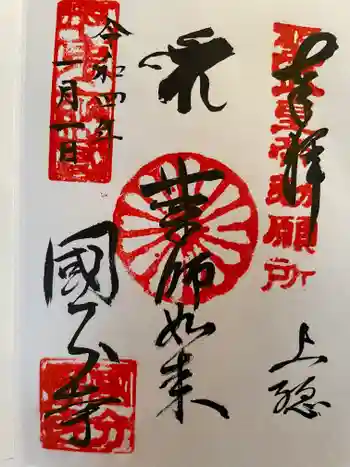 奉拝
勅願所
上総
薬師如来
令和四年
一月一日
國分寺